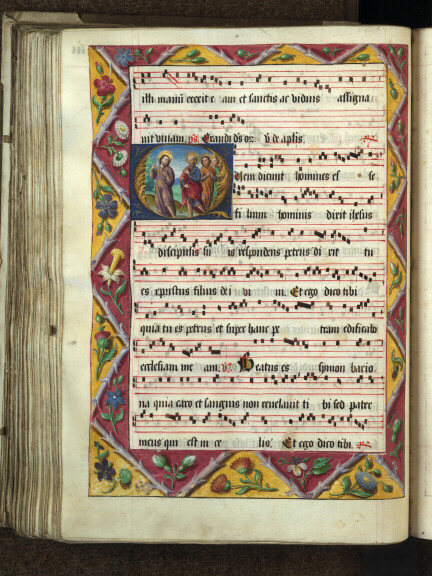 illi manū erexit e am et sanctis ac viduis assigna
vit vivam. ps Exaudi ds or. v de aplis.
Quem dicunt homines es se
fi lium hominis dixit ihesus
discipulis su is respondens petrus di xit tu
es xpristus filius dei vi vi. Et ego dico tibi
quia tu es petrus et super hanc pe tram edificabo
ecclesiam me am. vr Beatus es symon bario
na quia caro et sanguis non revelavit ti bi sed pater
meus qui est in ce lis. Et ego dico tibi.